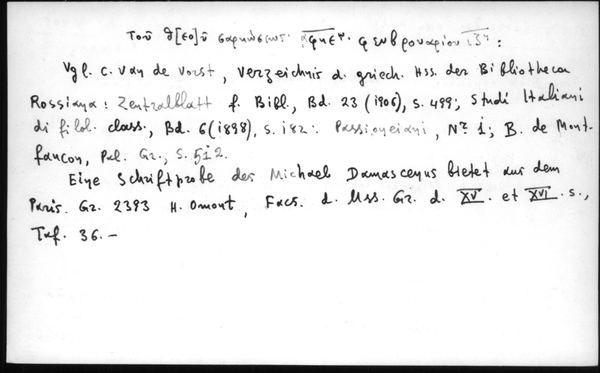 τοῦ θ[εο]ῦ σαρκώσεως αφιεʹ. φευβρουαρίου ιζʹ :
Vgl. C. Van de Vorst, Verzeichnis d. griech. Hss. der Bibliotheca
Rossiana: Zentralblatt f. Bibl., Bd. 23 (1906), S. 499; Studi Italiani
di filol. class., Bd. 6 (1898), S. 182: Passioneiani, Nº 1; B. de Mont-
faucon, Pal. Gr., S. 512.
Eine Schriftprobe des Michael Damascenus bietet aus dem
Paris. Gr. 2393 H. Omont, Facs. d. Mss. Gr. d. XV. et XVI. s.,
Taf. 36.-